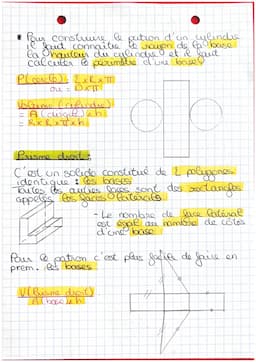 * Pour construire le patron d'un cylindre
il faut connaître le rayon de la base
la hauteur du cylindre et il faut
calculer le périmètre d'une base
P (cercle) : 2 x R x π
ou = D x π
Volume (cylindre)
= A (disque) x h
= R x R x π x h
Prisme droit :
C'est un solide constitué de 2 polygones
identique : les bases
Toutes les autres faces sont des rectangles
appelés les faces latérales
- Le nombre de face latéral
est égale au nombre de côtés
d'une base
Pour le patron c'est plus facile de faire en
prem. les bases
V (Prisme droit)
A base x h